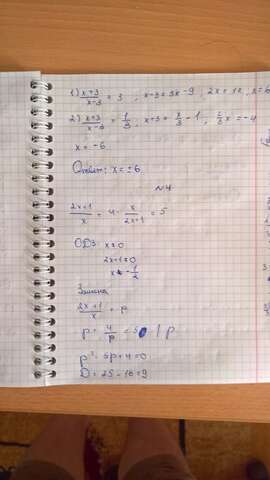 1) x+3/x-3 = 3 , x-3=3x-9, 2x=12, x=6
2) x+3/x-3 = 1/3, x+3=x/3-1, 2/3x=-4
x=-6
Ответ: x=±6
№4
2x+1/x = 4· x/2x+1 = 5
ОДЗ: x≠0
2x+1≠0
x≠-1/2
Замена
2x+1/x = p
p+ 4/p = 5 | p
p²-5p+4=0
D=25-16=9